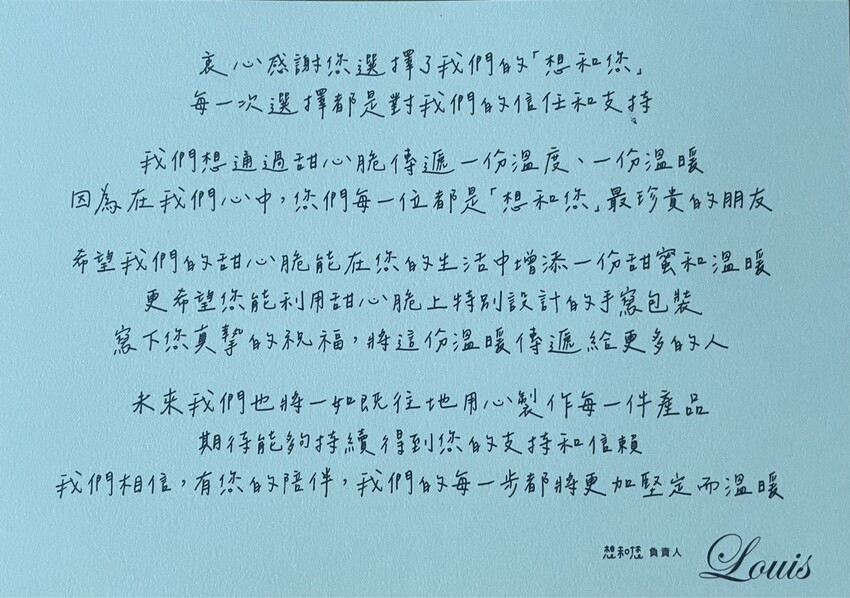 衷心感謝您選擇了我們的「想和您」
每一次選擇都是對我們的信任和支持
我們想通過甜心脆傳遞一份溫度、一份溫暖
因為在我們心中，您們每一位都是「想和您」最珍貴的朋友
希望我們的甜心脆能在您的生活中增添一份甜蜜和溫暖
更希望您能利用甜心脆上特別設計的手寫包裝
寫下您真摯的祝福，將這份溫暖傳遞給更多的人
未來我們也將一如既往地用心製作每一件產品
期待能夠持續得到您的支持和信賴
我們相信，有您的陪伴，我們的每一步都將更加堅定而溫暖
想和您 負責人 Louis